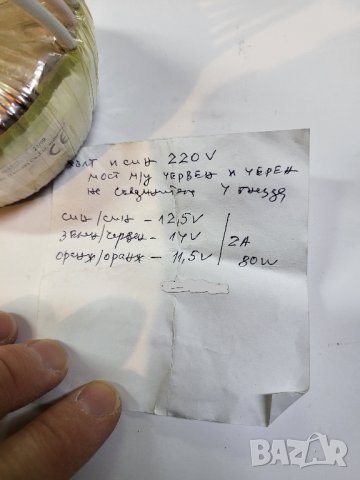 жълт и син 220V
мост м/у червен и черен
не съединител 4 гнезда
син/син - 12,5V
зелен/червен - 14V / 2A
оранж/оранж - 11,5V 80W
BAZAR